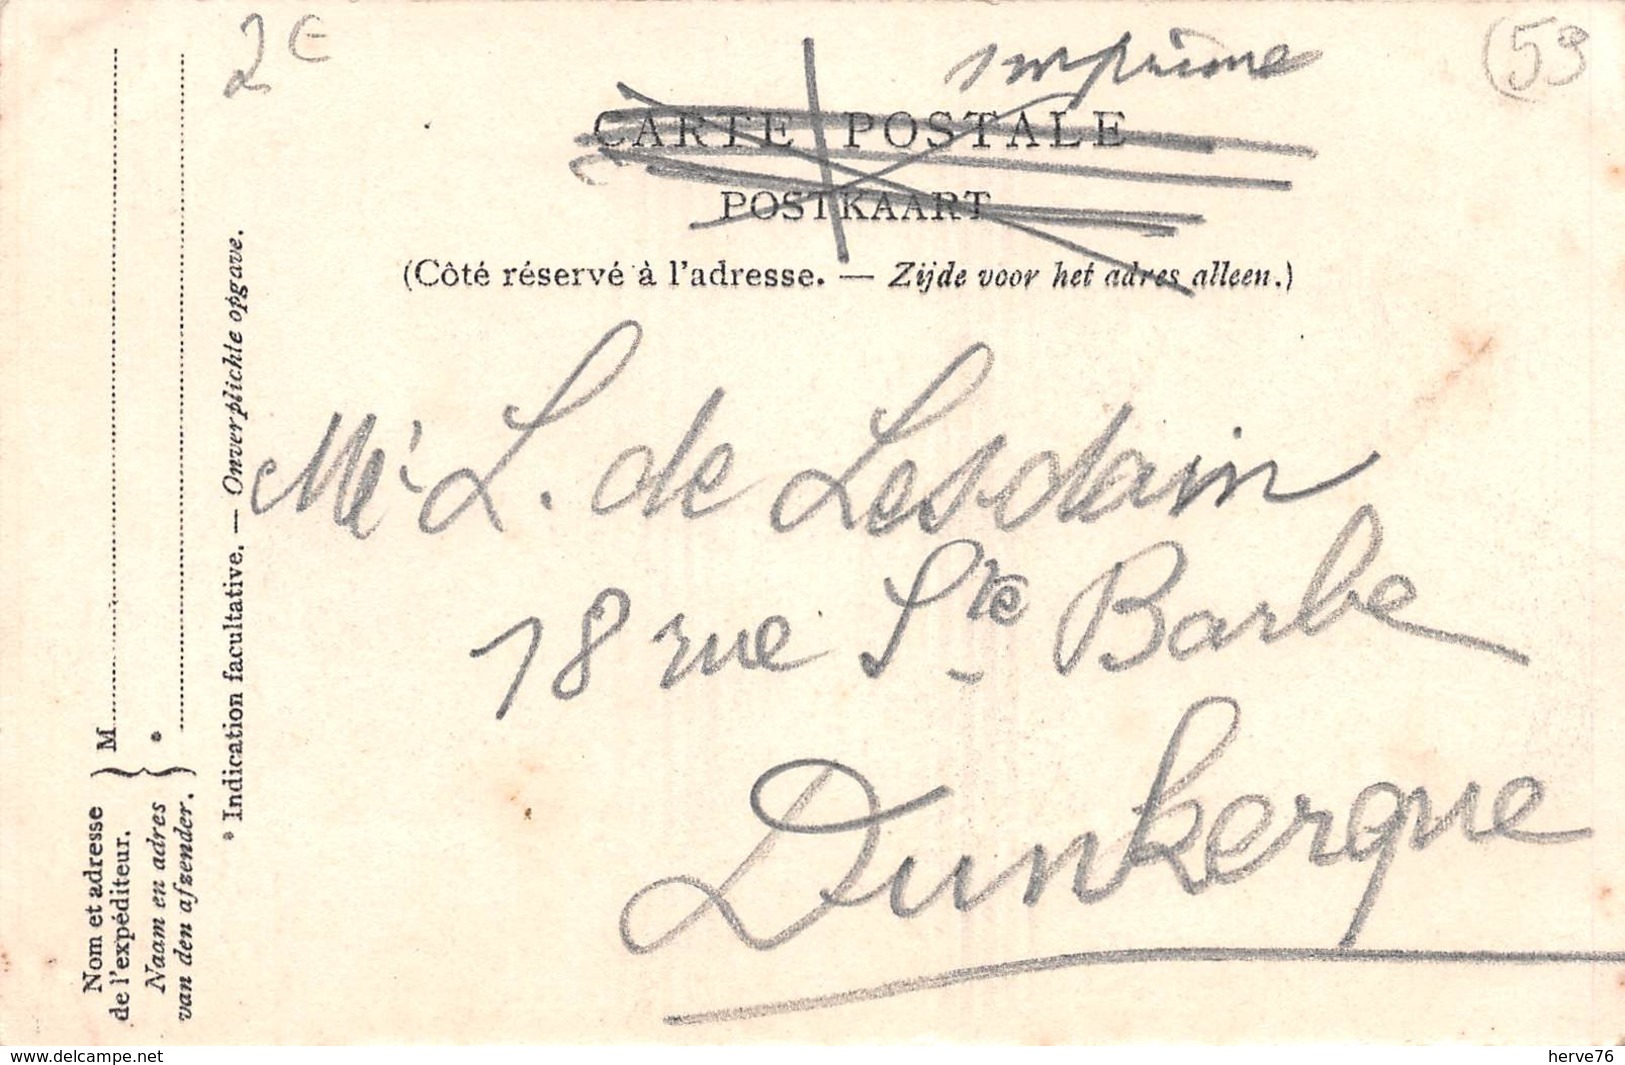 2€
(59
Imprimé
CARTE POSTALE
POSTKAART
(Côté réservé à l'adresse. — Zijde voor het adres alleen.)
Mr L. de Lesdain
18 rue Ste Barbe
Dunkerque
Nom et adresse
de l'expéditeur.
Naam en adres
van den afzender.
M
*
* Indication facultative. — Onverplichte opgave.
www.delcampe.net
herve76